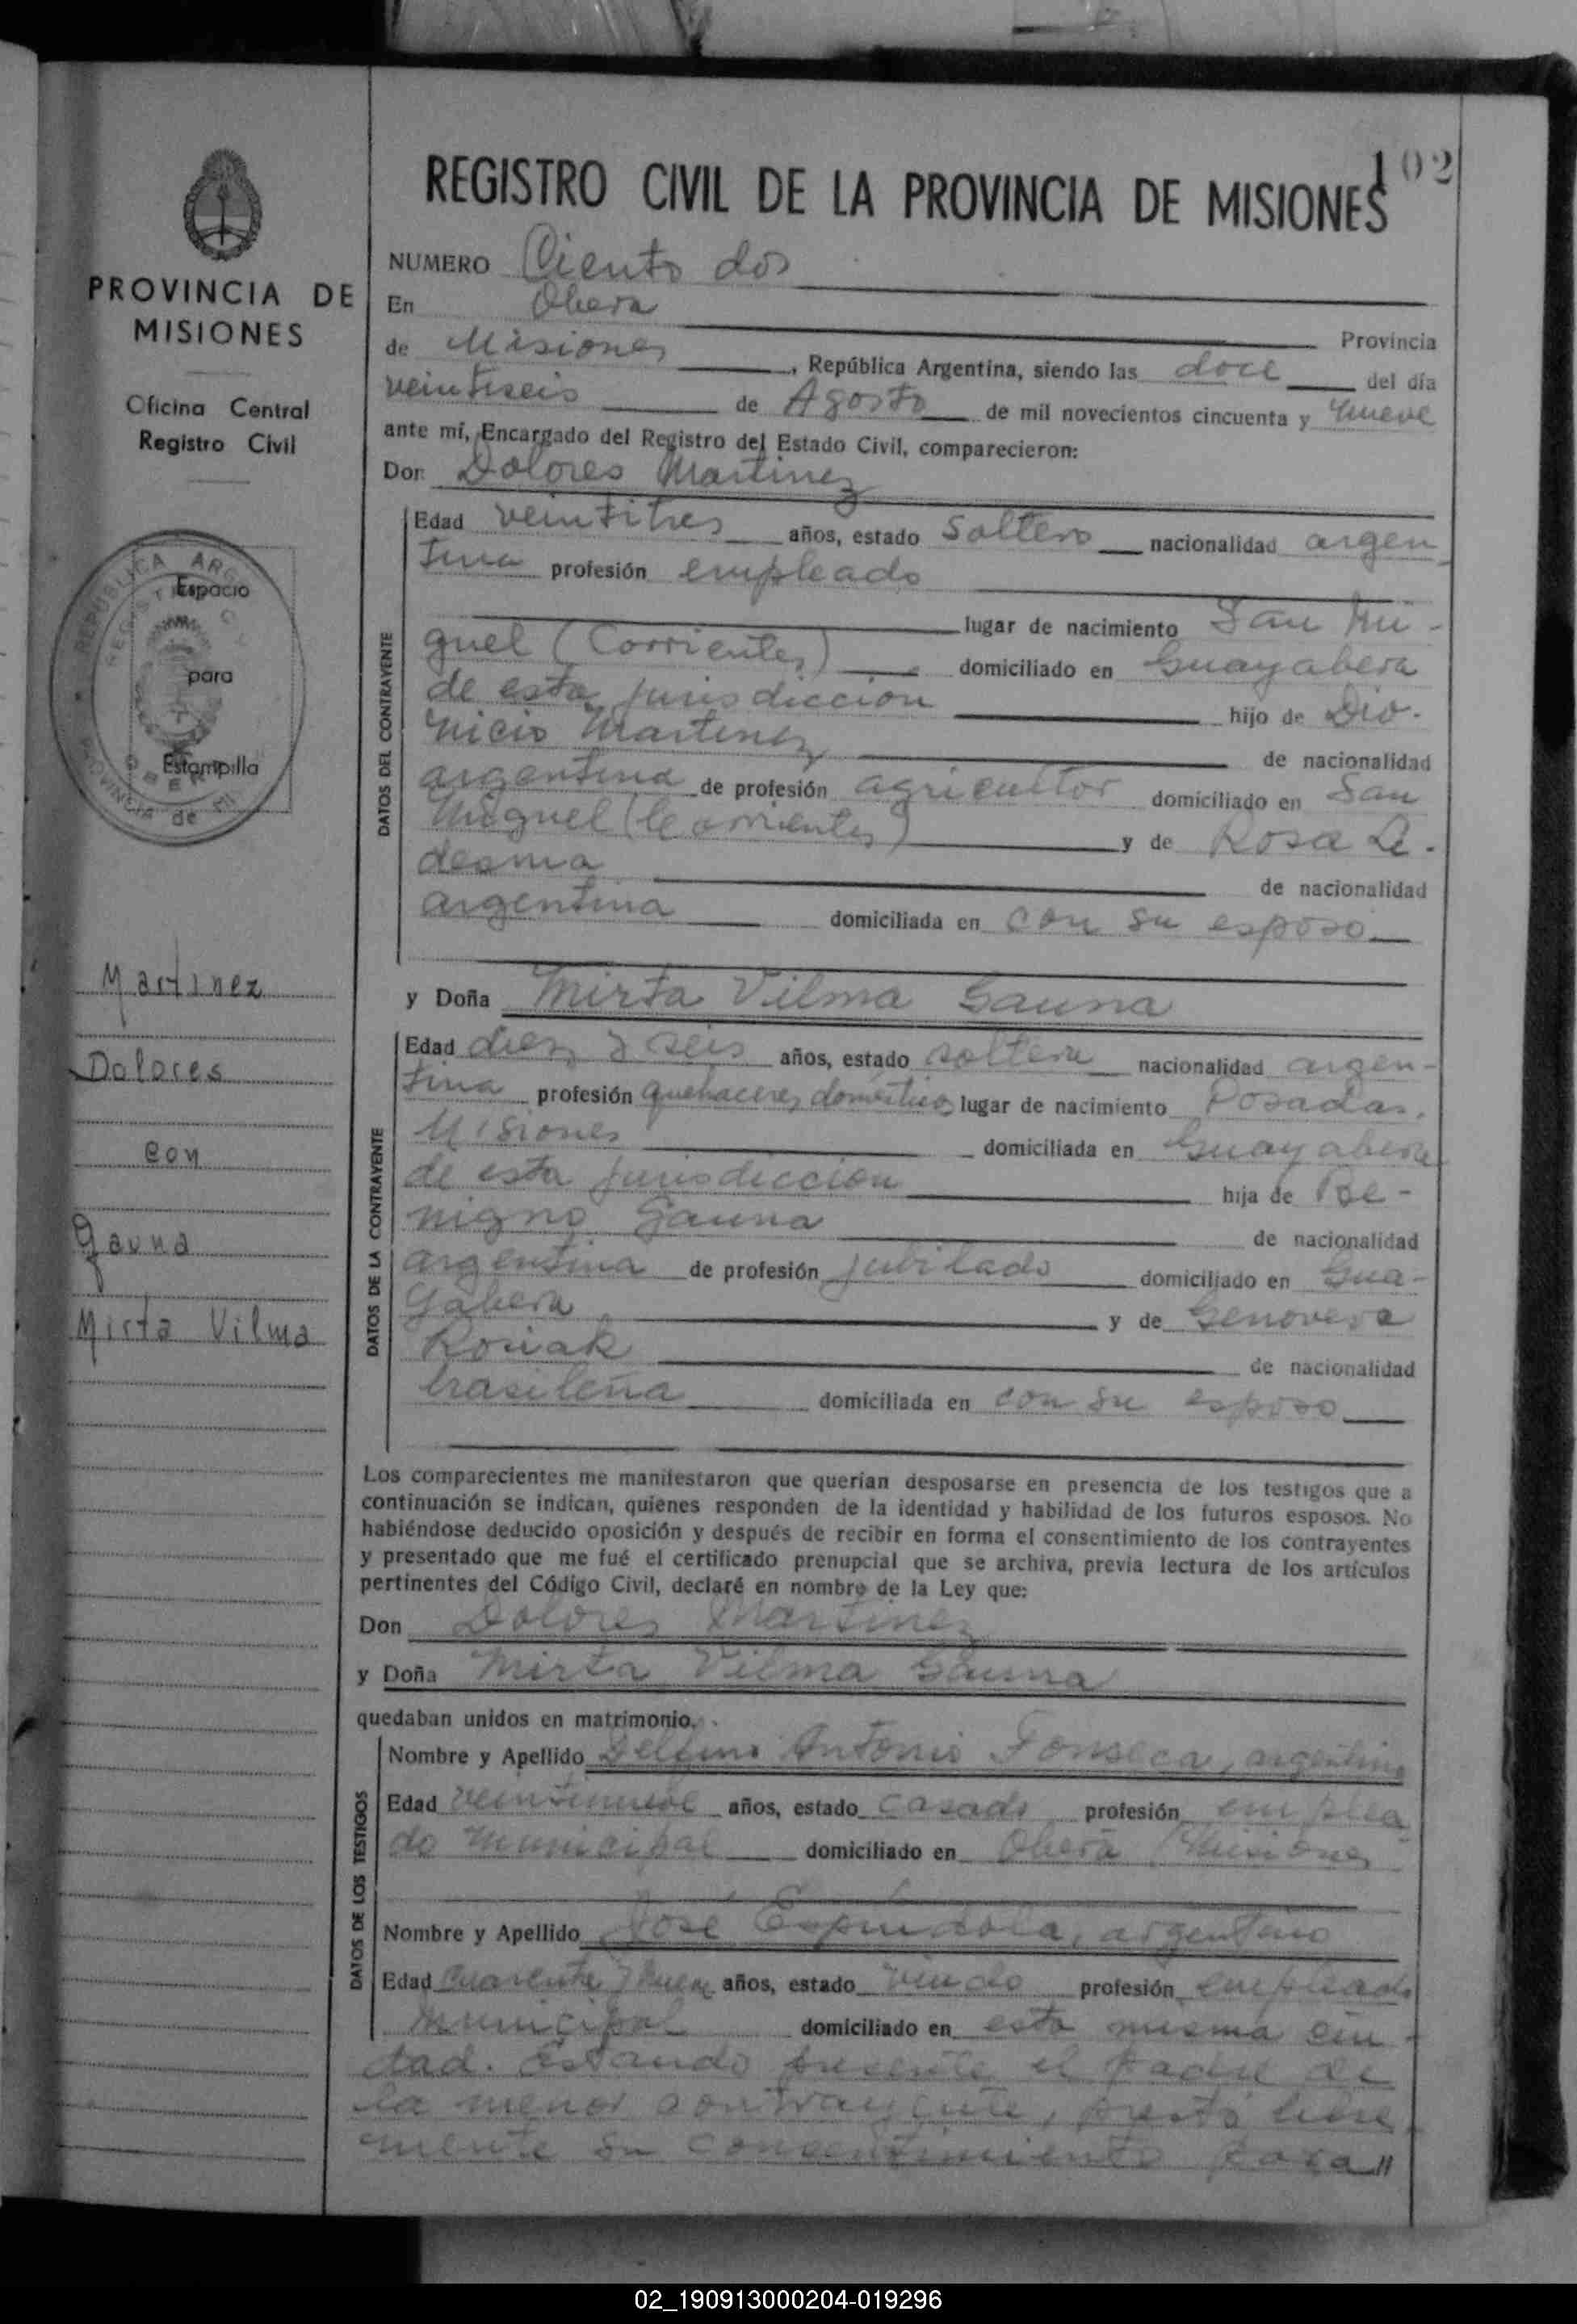 102
REGISTRO CIVIL DE LA PROVINCIA DE MISIONES
PROVINCIA DE
MISIONES
Oficina Central
Registro Civil
REPUBLICA ARG
Espacio
para
Estampilla
PROVINCIA de
Martinez
Dolores
con
Gauna
Mirta Vilma
NUMERO Ciento dos
En Obera
Provincia
de Misiones, República Argentina, siendo las doce del día
veintiseis de Agosto de mil novecientos cincuenta y nueve
ante mí, Encargado del Registro del Estado Civil, comparecieron:
Don Dolores Martinez
DATOS DEL CONTRAYENTE
Edad veintitres años, estado soltero nacionalidad argen
tina profesión empleado
lugar de nacimiento San Mi-
guel (Corrientes) domiciliado en Guayabera
de esta jurisdiccion hijo de Dio-
nicio Martinez de nacionalidad
argentina de profesión agricultor domiciliado en San
Miguel (Corrientes) y de Rosa Le-
desma de nacionalidad
argentina domiciliada en con su esposo
y Doña Mirta Vilma Gauna
DATOS DE LA CONTRAYENTE
Edad diez y seis años, estado soltera nacionalidad argen-
tina profesión quehaceres domésticos lugar de nacimiento Posadas,
Misiones domiciliada en Guayabera
de esta jurisdiccion hija de Be-
nigno Gauna de nacionalidad
argentina de profesión jubilado domiciliado en Gua-
yabera y de Genoveva
Kosiak de nacionalidad
brasileña domiciliada en con su esposo
Los comparecientes me manifestaron que querían desposarse en presencia de los testigos que a
continuación se indican, quienes responden de la identidad y habilidad de los futuros esposos. No
habiéndose deducido oposición y después de recibir en forma el consentimiento de los contrayentes
y presentado que me fué el certificado prenupcial que se archiva, previa lectura de los artículos
pertinentes del Código Civil, declaré en nombre de la Ley que:
Don Dolores Martinez
y Doña Mirta Vilma Gauna
quedaban unidos en matrimonio.
DATOS DE LOS TESTIGOS
Nombre y Apellido Delfino Antonio Fonseca, argentino
Edad veintinueve años, estado casado profesión emplea
do municipal domiciliado en Oberá Misiones
Nombre y Apellido José Espindola, argentino
Edad cuarenta y nueve años, estado viudo profesión empleado
municipal domiciliado en esta misma ciu-
dad. Estando presente el padre de
la menor contrayente, prestó libre-
mente su consentimiento para //
02_190913000204-019296